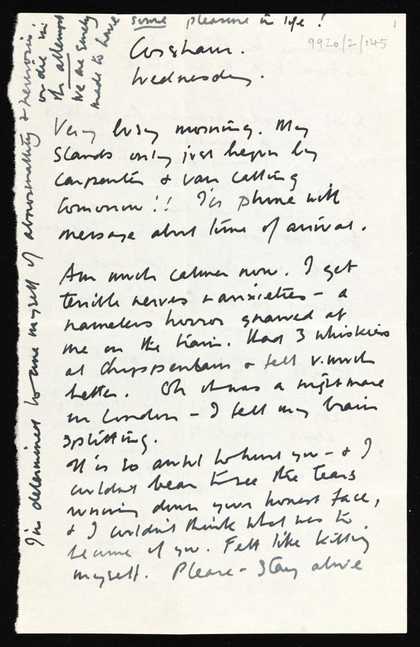 some pleasure in life!
9920/2/145
Corsham.
Wednesday.
Very busy morning. My
stands only just begun by
carpenter & van calling
tomorrow!! I'll phone with
message about time of arrival.
Am much calmer now. I get
terrible nerves & anxieties – a
nameless horror gnawed at
me on the train. Had 3 whiskies
at Chippenham & felt v. much
better. Oh it was a nightmare
in London – I felt my brain
splitting.
It is so awful to hurt you – & I
couldn't bear to see the tears
running down your honest face,
& I couldn't think what was to
become of you. Felt like killing
myself. Please – stay alive
I'm determined to cure myself of abnormality & heroisms:
or die in
the attempt
We are surely
made to have